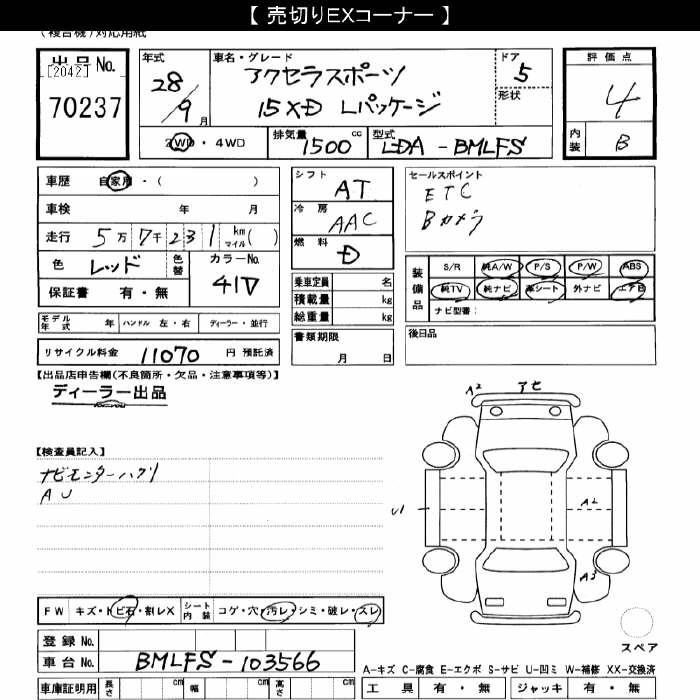 【 売切りEXコーナー 】
(複合機)対応用紙
出品 No.
[2042]
70237
年式
28/9月
車名・グレード
アクセラスポーツ
15XD Lパッケージ
ドア
5
形状
評価点
4
内装
B
2WD・4WD
排気量
1500 cc
型式
LDA-BMLFS
車歴 自家用・( )
車検 年 月
走行 5万7千231 km マイル( )
色 レッド
色替
カラーNo.
41V
保証書 有・無
シフト
AT
冷房
AAC
燃料
D
乗車定員 名
積載量 kg
総重量 kg
書類期限
月 日
セールスポイント
ETC
Bカメラ
装備品
S/R 純A/W P/S P/W ABS
純TV 純ナビ 革シート 外ナビ エアB
ナビ型番:
後日品
モデル年式 年
ハンドル 左・右
ディーラー・並行
リサイクル料金 11070 円 預託済
【出品店申告欄(不良箇所・欠品・注意事項等)】
ディーラー出品
【検査員記入】
ナビモニターハクリ
AU
A2
アセ
U1
A2
A3
スペア
FW キズ・トビ石・割レX
シート内装 コゲ・穴・汚レ・シミ・破レ・スレ
登録 No.
車台 No. BMLFS-103566
車庫証明用 長さ cm 幅 cm 高さ cm
A-キズ C-腐食 E-エクボ S-サビ U-凹ミ W-補修 XX-交換済
工具 有・無 ジャッキ 有・無